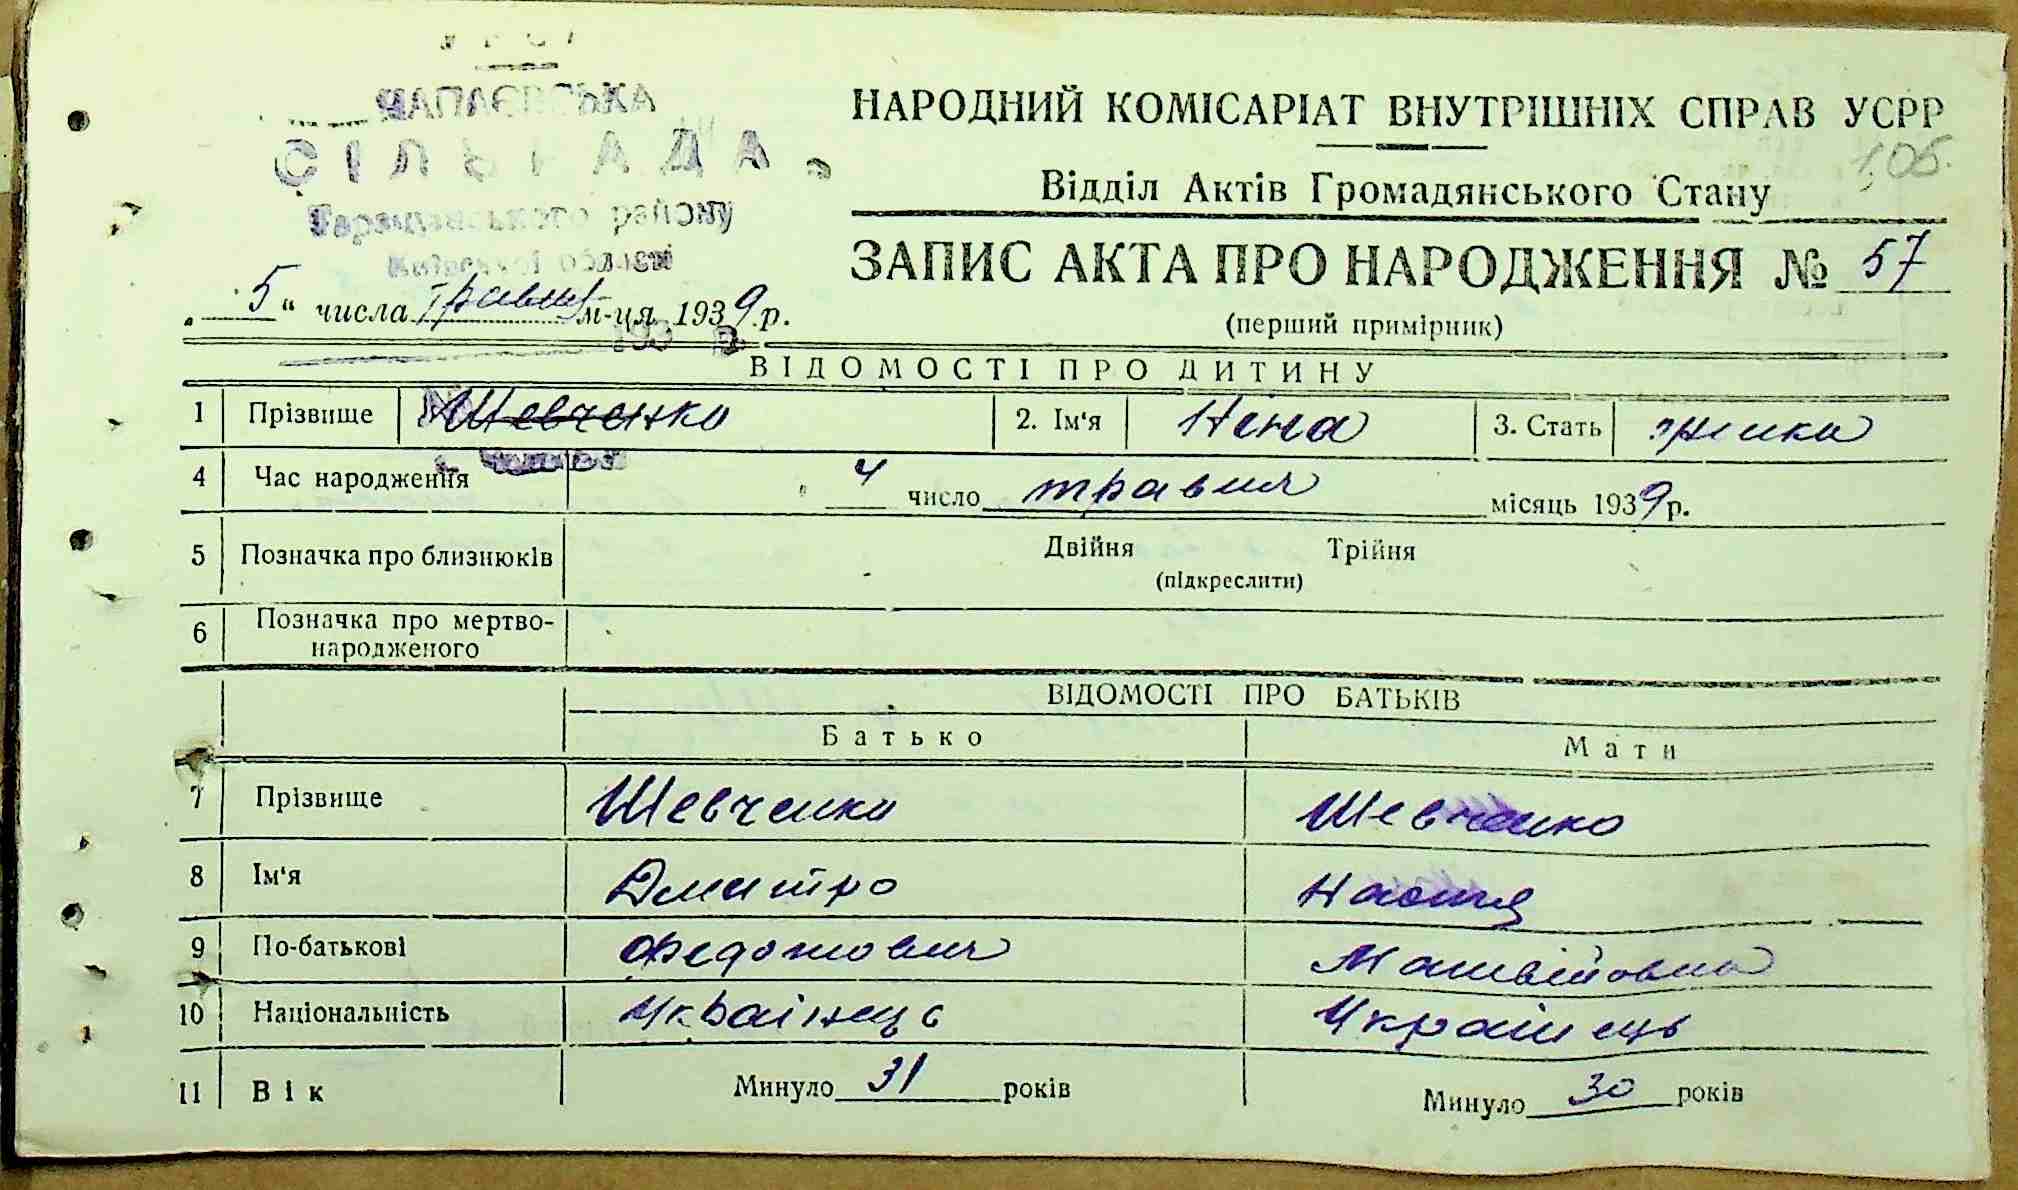 ЧАПАЄВСЬКА
СІЛЬРАДА
Таращанського району
Київської області
НАРОДНИЙ КОМІСАРІАТ ВНУТРІШНІХ СПРАВ УСРР
105.
Відділ Актів Громадянського Стану
ЗАПИС АКТА ПРО НАРОДЖЕННЯ № 57
„ 5 “ числа травня м-ця 1939 р.
(перший примірник)
193 р.
ВІДОМОСТІ ПРО ДИТИНУ
1 Прізвище Шевченко 2. Ім'я Ніна 3. Стать жінка
4 Час народження 4 число травня місяць 1939 р.
5 Позначка про близнюків Двійня Трійня
(підкреслити)
6 Позначка про мертво-
народженого
ВІДОМОСТІ ПРО БАТЬКІВ
Батько Мати
7 Прізвище Шевченко Шевченко
8 Ім'я Дмитро Настя
9 По-батькові Федотович Матвійовна
10 Національність Українець Українець
11 Вік Минуло 31 років Минуло 30 років